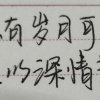 有岁月可
以深情